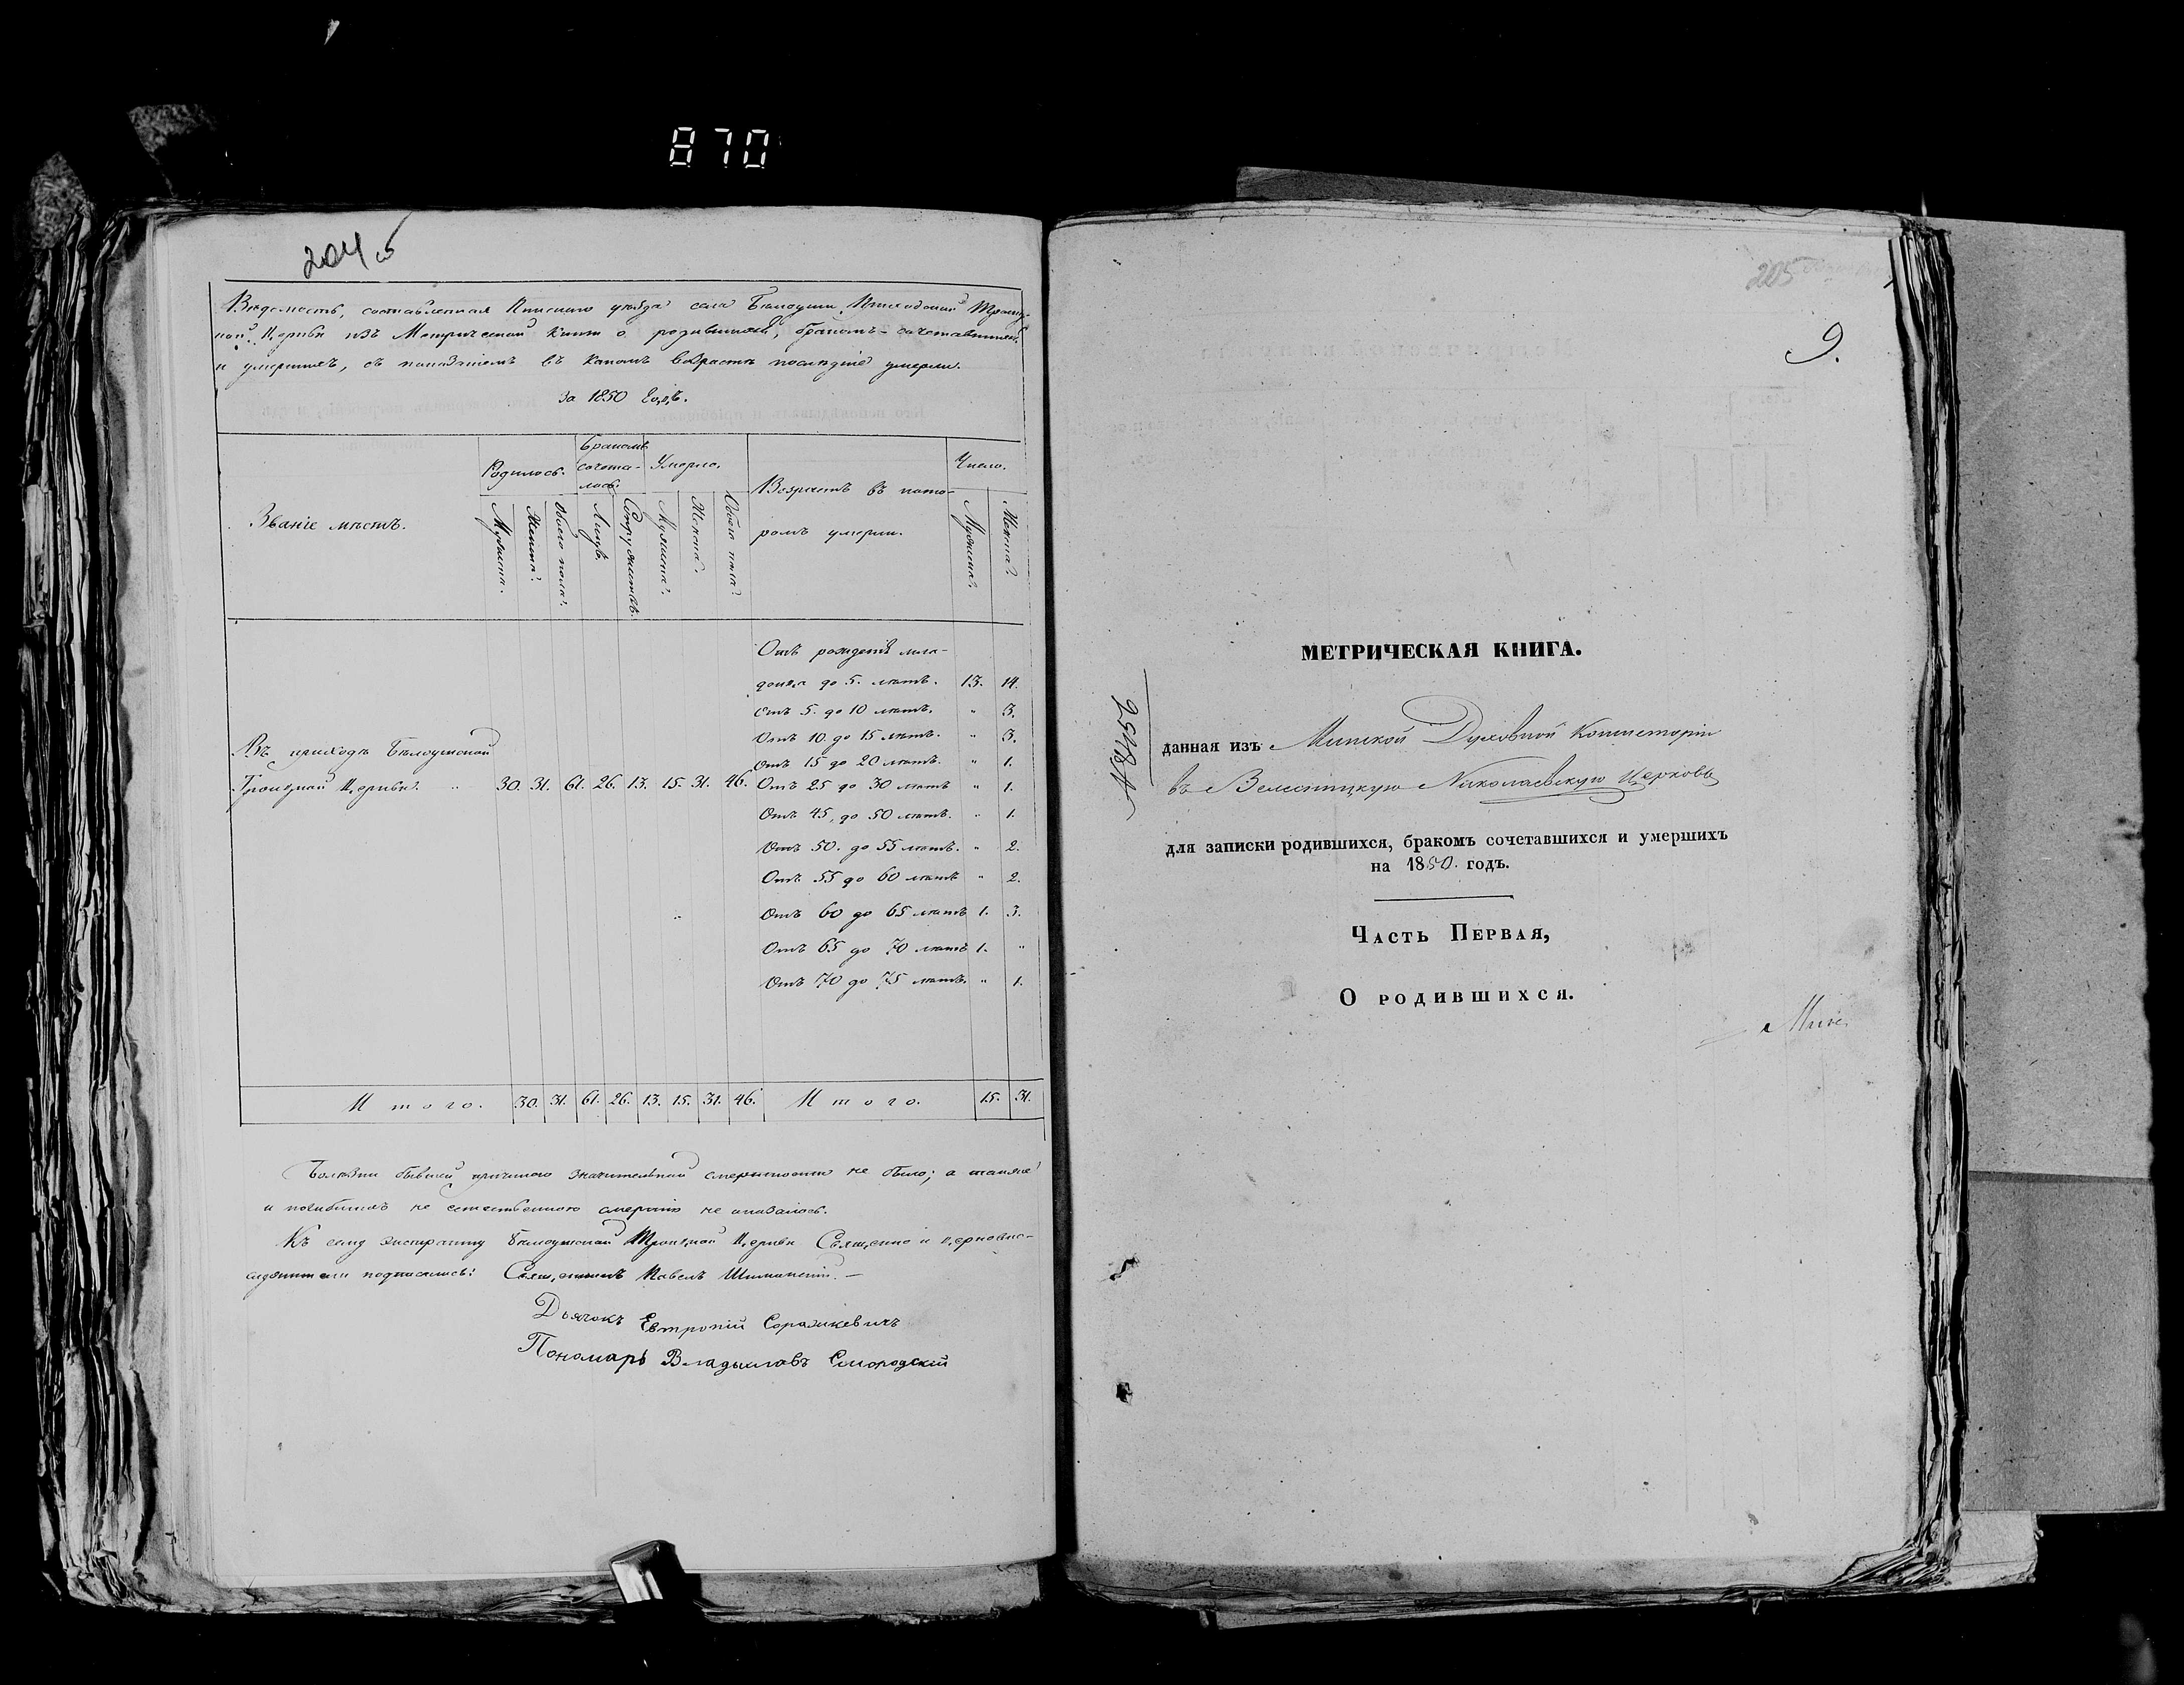 870
204 б
Вѣдомость, составленная Пинскаго уѣзда села Бѣлоуши Приходской Троиц-
кой Церкви изъ Метрической Книги о родившихся, бракомъ-сочетавшихся
и умершихъ, съ показаніемъ въ какомъ возрастѣ послѣдніе умерли.
за 1850 Годъ.
Званіе мѣстъ.
Родилось.
Бракомъ
сочета-
лось.
Умерло.
Возрастъ въ кото-
ромъ умерли.
Число.
Мужеска.
Женска.
Обоего пола.
Лицъ.
Супружествъ.
Мужеска.
Женска.
Обоего пола.
Мужеска.
Женска.
Отъ рожденія мла-
денца до 5. лѣтъ. 13. 14.
Отъ 5. до 10 лѣтъ. " 3.
Отъ 10 до 15 лѣтъ. " 3.
Въ приходѣ Бѣлоушской
Отъ 15 до 20 лѣтъ. " 1.
Троицкой Церкви. " 30. 31. 61. 26. 13. 15. 31. 46. Отъ 25 до 30 лѣтъ " 1.
Отъ 45, до 50 лѣтъ. " 1.
Отъ 50. до 55 лѣтъ. " 2.
Отъ 55 до 60 лѣтъ " 2.
Отъ 60 до 65 лѣтъ 1. 3.
Отъ 65 до 70 лѣтъ 1. "
Отъ 70 до 75 лѣтъ. " 1.
Итого. 30. 31. 61. 26. 13. 15. 31. 46. Итого. 15. 31.
Болѣзни бывшей причиною значительной смертности не было; а также
и погибшихъ не естественною смертію не оказалось.
Къ сему экстракту Бѣлоушской Троицкой Церкви Священно и церковно-
служители подписались: Священникъ Павелъ Шиманскій. —
Дьячокъ Евтропій
Пономарь Владыславъ Смородскій
205
9.
МЕТРИЧЕСКАЯ КНИГА.
данная изъ Минской Духовной Консисторіи
въ Велемицкую Николаевскую Церковь
для записки родившихся, бракомъ сочетавшихся и умершихъ
на 1850. годъ.
Часть Первая,
О родившихся.